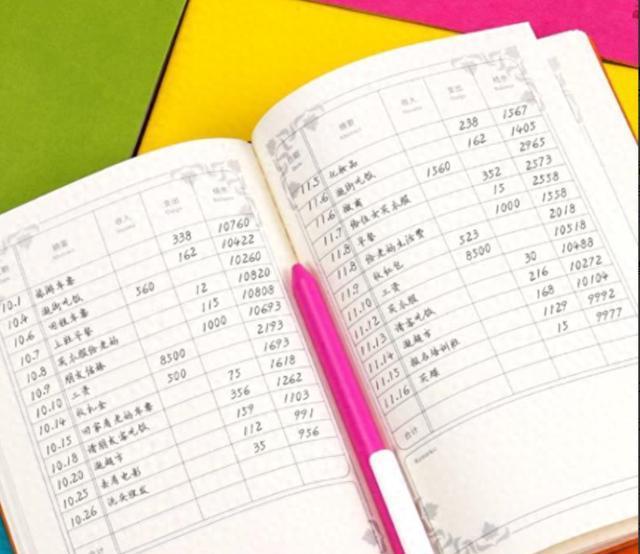 日期 摘要 收入 支出 结余
10.1 旅游车费 338 10760
10.4 逛街吃饭 162 10422
10.6 回程车费 560 10260
10.7 上班早餐 12 10820
10.8 买衣服给老妈 115 10808
10.9 朋友结婚 1000 10693
10.10 工资 8500 2193
10.14 收礼金 500 1693
10.15 回家看老妈车费 75 1618
10.18 请朋友客吃饭 356 1262
10.20 逛超市 159 1103
10.25 去看电影 112 991
10.26 洗头理发 35 956
合计
日期 摘要 收入 支出 结余
11.5 化妆品 238 1567
11.6 逛街吃饭 162 1405
11.6 1560 2965
11.7 给侄女买衣服 352 2573
11.8 早餐 15 2558
11.8 给老妈生活费 1000 1558
11.9 收红包 523 2018
11.10 工资 8500 10518
11.12 30 10488
11.13 请客吃饭 216 10272
11.14 逛超市 168 10104
11.15 报名培训班 1129 9992
11.16 15 9977
合计
Remarks: